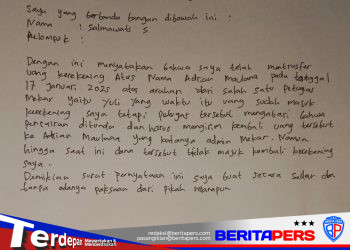 Saya yang bertanda tangan dibawah ini :
Nama : Salmawati S
Kelompok :
Dengan ini menyatakan bahwa saya telah mentransfer
uang kerekening Atas Nama Adrian Maulana pada tanggal
17 Januari 2025 atas arahan dari salah satu petugas
Mekar yaitu Yuli yang waktu itu uang sudah masuk
kerekening saya tetapi petugas tersebut mengatakan bahwa
pencairan ditunda dan harus mengirim kembali uang tersebut
ke Adrian Maulana yang katanya admin Mekar. Namun
hingga saat ini dana tersebut tidak masuk kembali kerekening
saya.
Demikian surat pernyataan ini saya buat secara sadar dan
tanpa adanya paksaan dari pihak manapun.
Terdepan Mewartakan &
Memberitakan
redaksi@beritapers.com
pasangiklan@beritapers.com
BERITAPERS